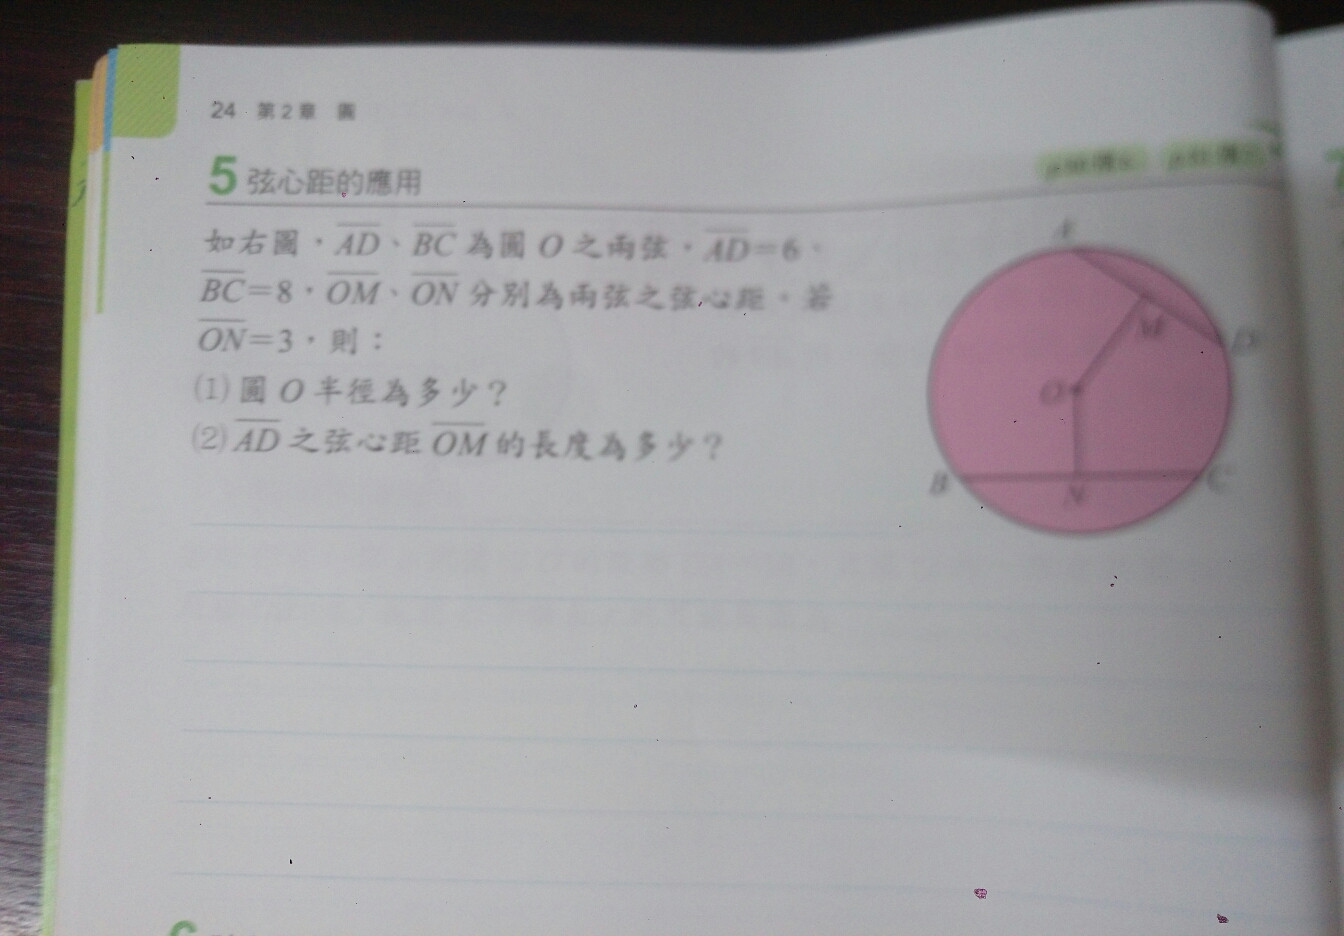 24 第2章 圓
5 弦心距的應用
如右圖，AD、BC 為圓 O 之兩弦，AD=6、
BC=8，OM、ON 分別為兩弦之弦心距。若
ON=3，則：
(1) 圓 O 半徑為多少？
(2) AD 之弦心距 OM 的長度為多少？
A
M
D
O
B
N
C